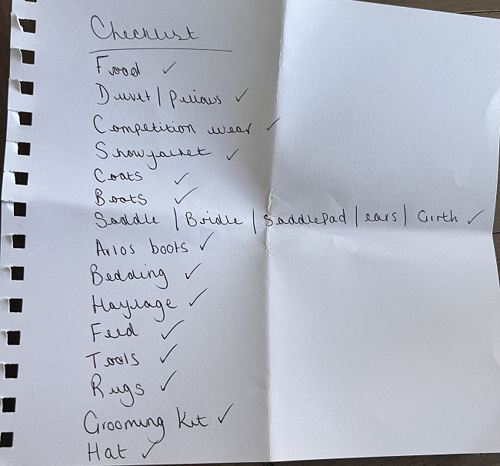 Checklist
Food ✓
Duvet | Pillows ✓
Competition wear ✓
Showjacket ✓
Coats ✓
Boots ✓
Saddle | Bridle | Saddlepad | ears | Girth ✓
Arlos boots ✓
Bedding ✓
Haylage ✓
Feed ✓
Tools ✓
Rugs ✓
Grooming Kit ✓
Hat ✓